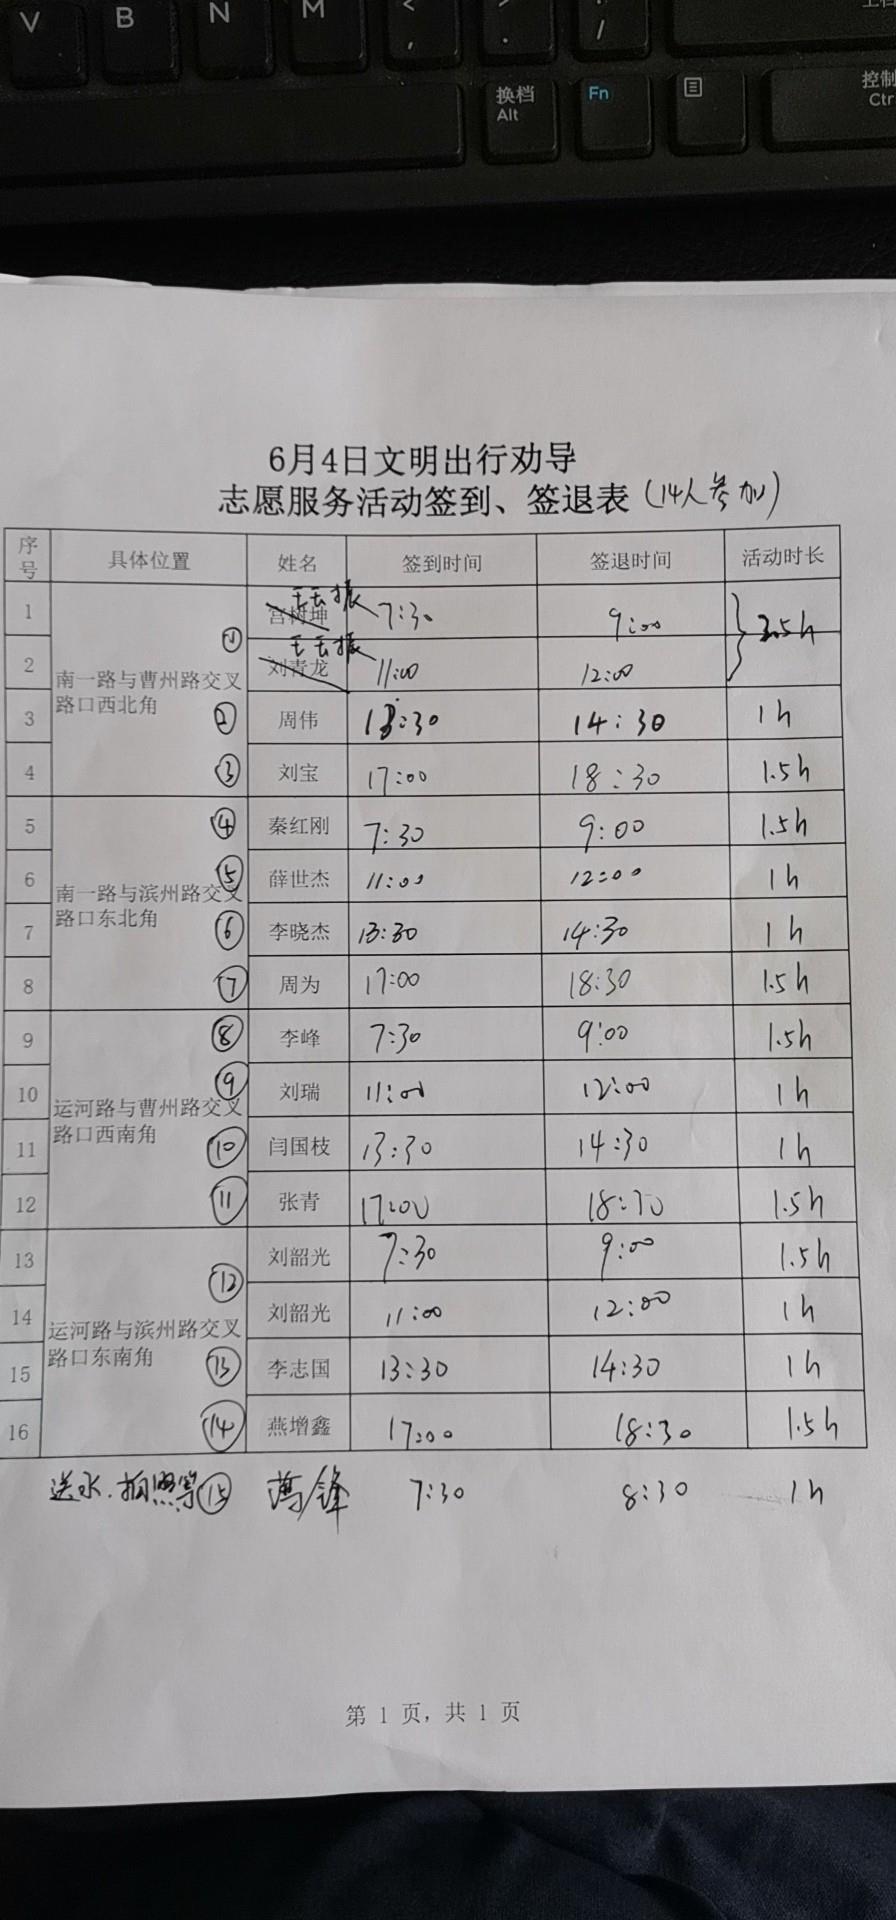 V B N M < , > . ? /
换档 Alt Fn 控制 Ctr
6月4日文明出行劝导
志愿服务活动签到、签退表 (14人参加)
序号 具体位置 姓名 签到时间 签退时间 活动时长
南一路与曹州路交叉路口西北角
1 ① 宫树坤 7:30 9:00
2 刘青龙 11:00 12:00 2.5h
3 ② 周伟 13:30 14:30 1h
4 ③ 刘宝 17:00 18:30 1.5h
南一路与滨州路交叉路口东北角
5 ④ 秦红刚 7:30 9:00 1.5h
6 ⑤ 薛世杰 11:00 12:00 1h
7 ⑥ 李晓杰 13:30 14:30 1h
8 ⑦ 周为 17:00 18:30 1.5h
运河路与曹州路交叉路口西南角
9 ⑧ 李峰 7:30 9:00 1.5h
10 ⑨ 刘瑞 11:00 12:00 1h
11 ⑩ 闫国枝 13:30 14:30 1h
12 ⑪ 张青 17:00 18:30 1.5h
运河路与滨州路交叉路口东南角
13 ⑫ 刘韶光 7:30 9:00 1.5h
14 刘韶光 11:00 12:00 1h
15 ⑬ 李志国 13:30 14:30 1h
16 ⑭ 燕增鑫 17:00 18:30 1.5h
送水、拍照等 ⑮ 锋 7:30 8:30 1h
第 1 页，共 1 页